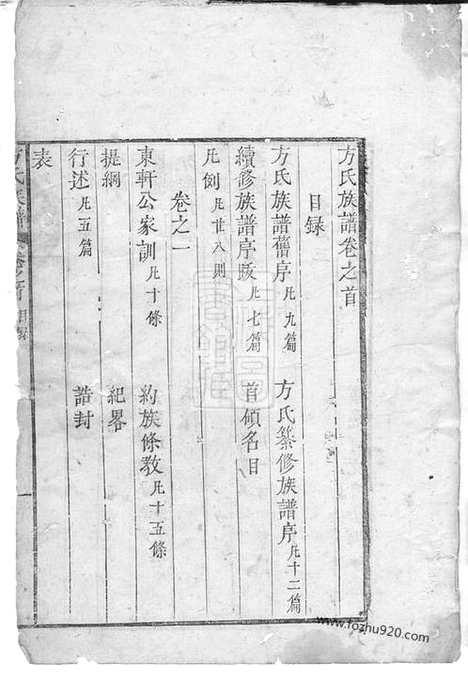 方氏族譜卷之首
目録
方氏族譜舊序凡九篇 方氏纂修族譜序凡十二篇
續修族譜序跋凡七篇 首傾名目
凡例凡廿八則
卷之一
東軒公家訓凡十條 約族條教凡十五條
提綱 紀畧
行述凡五篇 誥封
表
方氏族譜 卷之首 目録 一
www.fozhu920.com